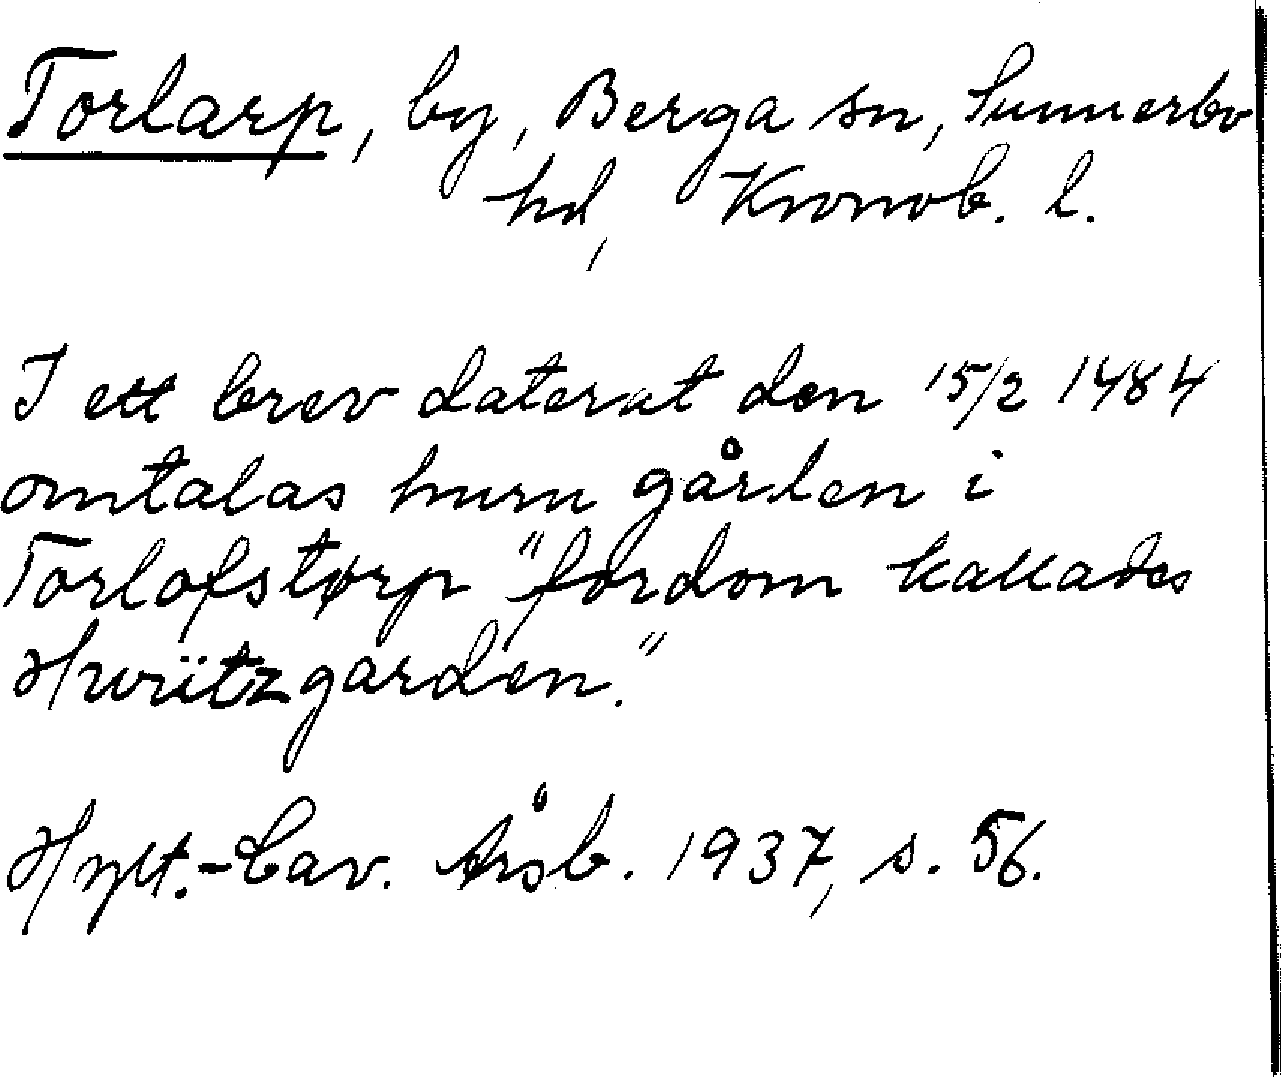 Torlarp, by, Berga sn, Sunnerbo
hd, Kronob. l.
I ett brev daterat den 15/2 1484
omtalas huru gården i
Torlofstørp "fordom kallades
Hwiitzgarden."
Hylt.-Cav. Årsb. 1937, s. 56.